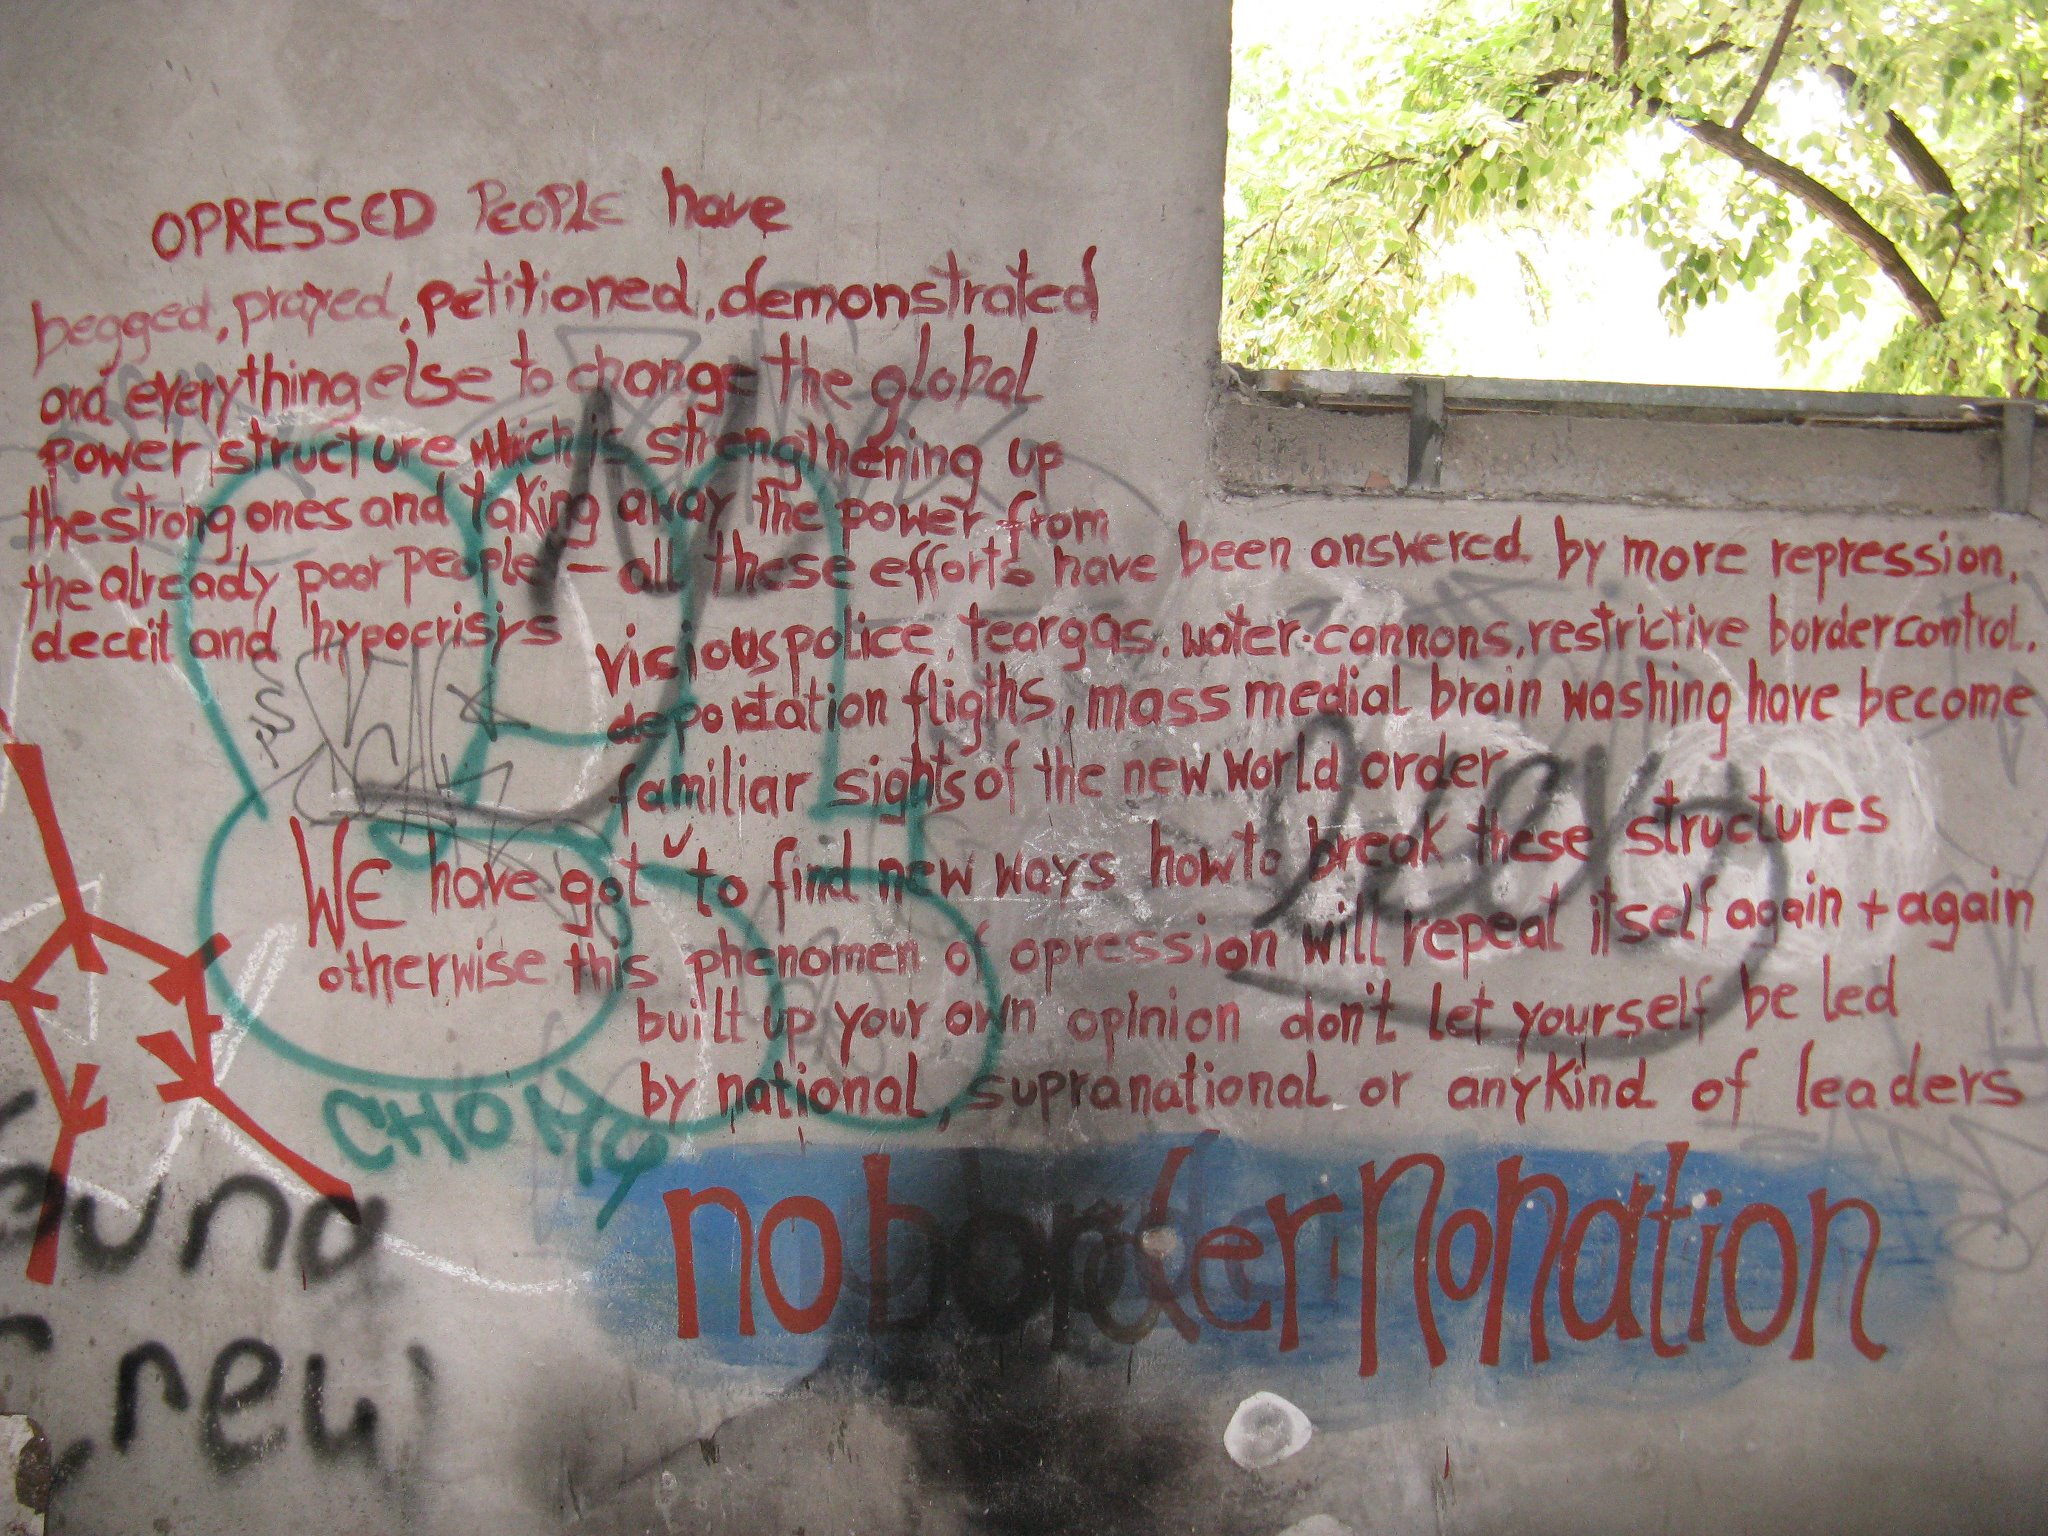 OPRESSED PEOPLE have
begged, prayed, petitioned, demonstrated
and everything else to change the global
power structure which is strengthening up
the strong ones and taking away the power from
the already poor people – all these efforts have been answered by more repression,
deceit and hypocrisys
vicious police, teargas, water-cannons, restrictive bordercontrol,
deportation fligths, mass medial brain washing have become
familiar sights of the new world order
WE have got to find new ways how to break these structures
otherwise this phenomen of opression will repeat itself again + again
built up your own opinion don't let yourself be led
by national, supranational or anykind of leaders
CHOMY
no border no nation
crew